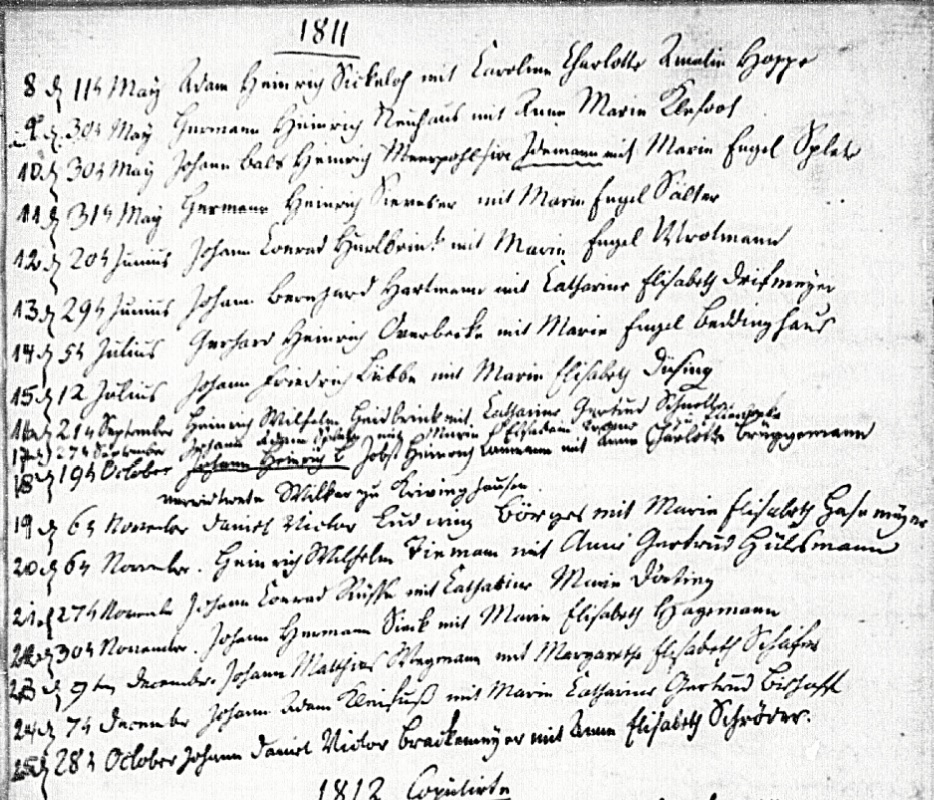 1811
8 d 11t May Adam Heinrich Sickeloh mit Caroline Charlotte Amalia Hoppe
9 d 30t May Hermann Heinrich Neuhaus mit Anne Marie Klefoot
10 d 30t May Johann Heinrich Meerpohl sive Idemann mit Marie Engel Splete
11 d 31t May Hermann Heinrich mit Marie Engel Sälter
12 d 20t Junius Johann Conrad Hurlbrink mit Marie Engel
13 d 29t Junius Johann Bernhard Hartmann mit Catharine Elisabeth Dreismeyer
14 d 5t Julius Gerhard Heinrich Overbecke mit Marie Engel Beddinghaus
15 d 12 Julius Johann Friedrich Lübbe mit Marie Elisabeth Düsing
16 d 21t September Heinrich Wilhelm Heidbrink mit Catharine Gertrud
17 d 27t September Johann Adam mit Marie Elisabeth
18 d 19t October Johann Heinrich Jobst Heinrich mit Anne Charlotte Brüggemann
Wilker zu
19 d 6t November Daniel Victor Ludwig Börges mit Marie Elisabeth Hasemeyer
20 d 6t November. Heinrich Wilhelm Tiemann mit Anne Gertrud Hülsmann
21 d 27t November Johann Conrad mit Catharine Marie Dörting
22 d 30t November. Johann Hermann Sieck mit Marie Elisabeth Hagemann
23 d 9ten December. Johann Matthias Wegmann mit Margarethe Elisabeth Schäfer
24 d 7t December Johann Adam Kleinfuß mit Marie Catharine Gertrud Bishoff
25 d 28t October Johann Daniel Victor Brackemeyer mit Anne Elisabeth Schröder.
1812 Copulirte